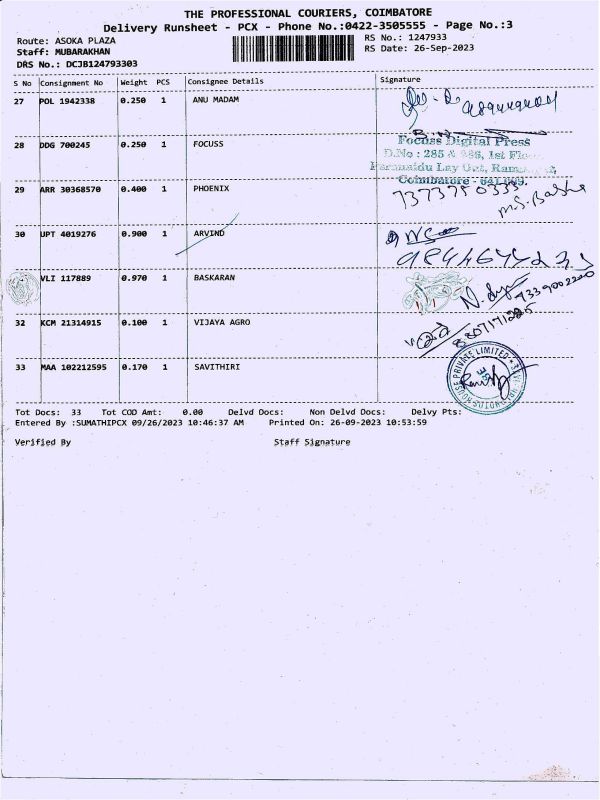 THE PROFESSIONAL COURIERS, COIMBATORE
Delivery Runsheet - PCX - Phone No.:0422-3505555 - Page No.:3
Route: ASOKA PLAZA RS No.: 1247933
Staff: MUBARAKHAN RS Date: 26-Sep-2023
DRS No.: DCJB124793303
S No Consignment No Weight PCS Consignee Details Signature
27 POL 1942338 0.250 1 ANU MADAM
28 DDG 700245 0.250 1 FOCUSS
Focuss Digital Press
D.No : 285 & 286, 1st
Lay Out,
Coimbatore
29 ARR 30368570 0.400 1 PHOENIX
7373750333
30 UPT 4019276 0.900 1 ARVIND
VLI 117889 0.970 1 BASKARAN
7339002220
32 KCM 21314915 0.100 1 VIJAYA AGRO
33 MAA 102212595 0.170 1 SAVITHIRI
PRIVATE LIMITED
Tot Docs: 33 Tot COD Amt: 0.00 Delvd Docs: Non Delvd Docs: Delvy Pts:
Entered By :SUMATHIPCX 09/26/2023 10:46:37 AM Printed On: 26-09-2023 10:53:59
Verified By Staff Signature